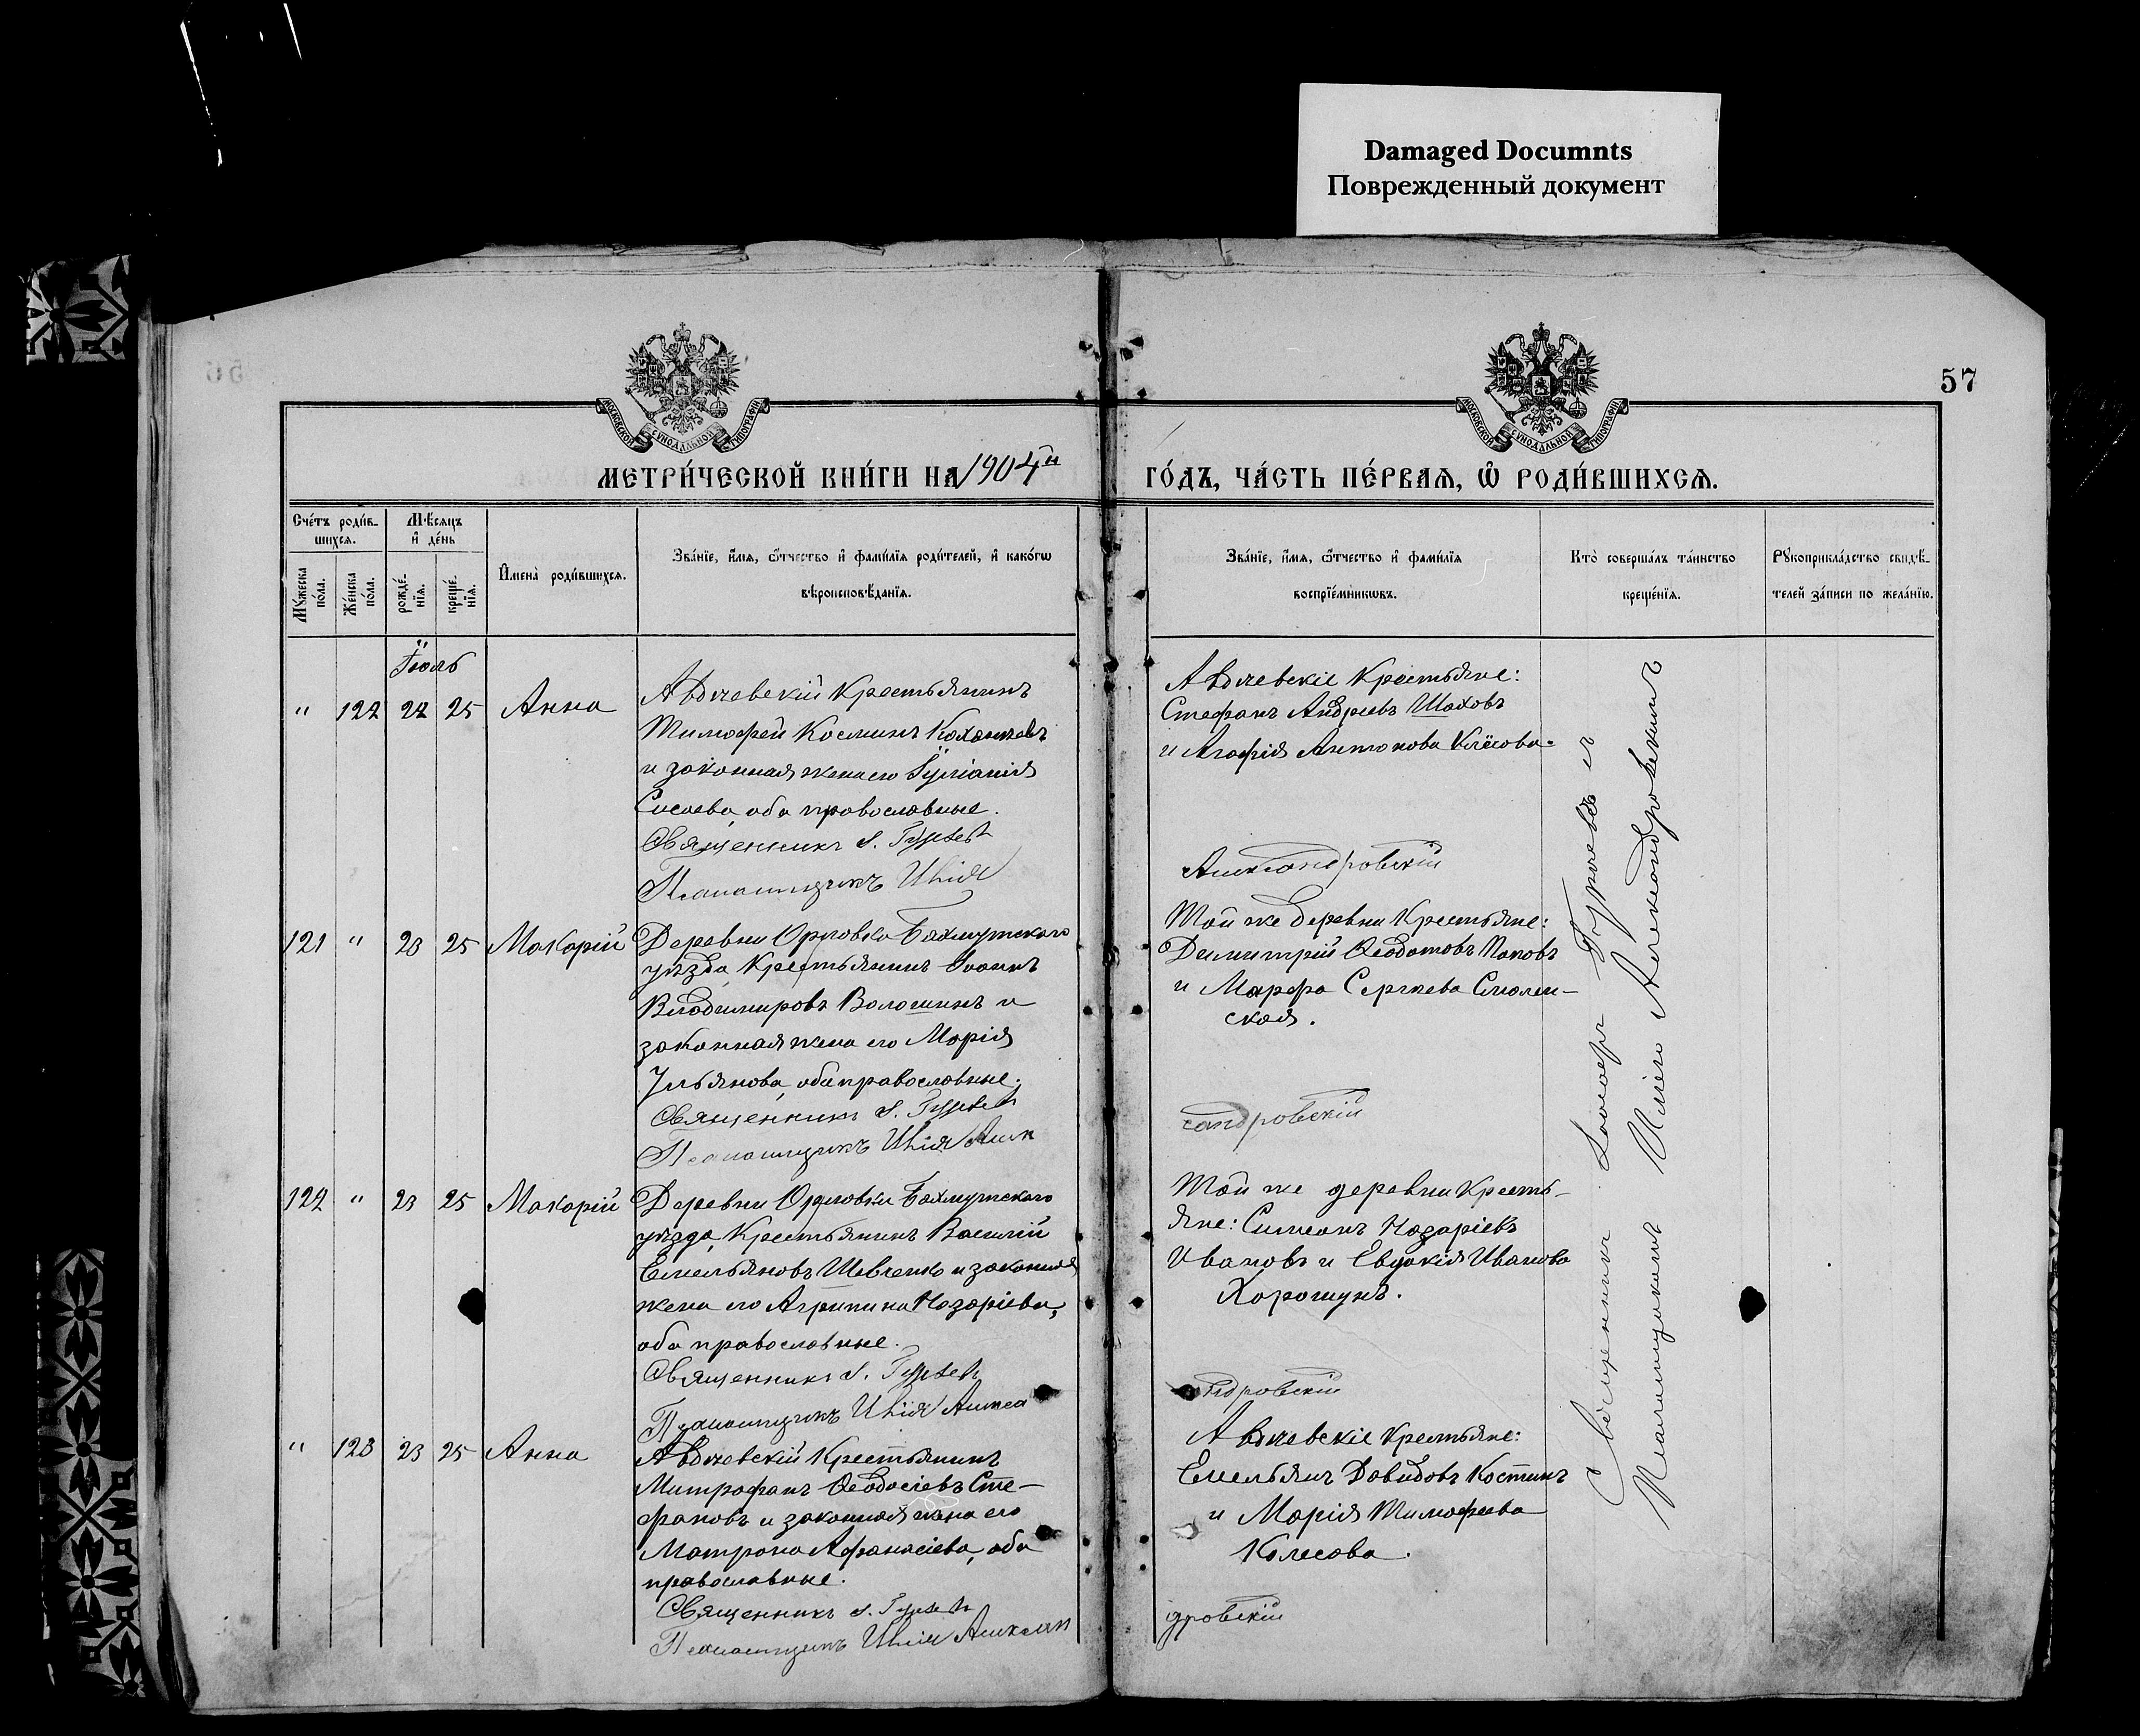 Damaged Documnts
Поврежденный документ
57
МОСКОВСКОЙ СѴНОДАЛЬНОЙ ТИПОГРАФІИ
МОСКОВСКОЙ СѴНОДАЛЬНОЙ ТИПОГРАФІИ
МЕТРИ́ЧЕСКОЙ КНИ́ГИ НА 1904й
ГО́ДЪ, ЧА́СТЬ ПЕ́РВАЯ, Ѡ҆ РОДИ́ВШИХСЯ.
Сче́тъ роди́в-
шихся.
Му́жеска по́ла.
Же́нска по́ла.
Мѣ́сяцъ
и҆ де́нь
рожде́-
нїя.
креще́-
нїя.
И҆мена̀ роди́вшихся.
Зва́нїе, и҆́мя, ѻ҆́тчество и҆ фами́лїя роди́телей, и҆ како́гѡ
вѣроисповѣ́данїя.
Зва́нїе, и҆́мя, ѻ҆́тчество и҆ фами́лїя
воспрїе́мникѡвъ.
Кто̀ соверша́лъ та́инство
креще́нїя.
Рꙋкоприкла́дство свидѣ́-
телей за́писи по жела́нїю.
Іюль
" 122 22 25 Анна
Авдѣевскій крестьянинъ
Тимофей Косминъ
и законная жена его Іуліанія
Сисоева, оба православные.
Священникъ І. Гурьевъ
Псаломщикъ Илія
Авдѣевскіе крестьяне:
Стефанъ Андреевъ Шаховъ
и Агафія Антонова Клёсова.
Александровскій
121 " 23 25 Макарій
Деревни Орловки Бахмутскаго
уѣзда, крестьянинъ Іоаннъ
Владимировъ Волошинъ и
законная жена его Марія
Ульянова, оба православные.
Священникъ І. Гурьевъ
Псаломщикъ Илія Алек
Той же деревни крестьяне:
Димитрій Ѳеодотовъ Поповъ
и Марфа Сергѣева Смолен-
ская.
сандровскій
122 " 23 25 Макарій
Деревни Орловки Бахмутскаго
уѣзда, крестьянинъ Василій
Емельяновъ Шевченко и законная
жена его Агрипина Назаріева,
оба православные.
Священникъ І. Гурьевъ
Псаломщикъ Илія Алекса
Той же деревни кресть-
яне: Симеонъ Назаріевъ
Ивановъ и Евдокія Иванова
Хорошунъ.
ндровскій
" 123 23 25 Анна
Авдѣевскій крестьянинъ
Митрофанъ Ѳеодосіевъ Сте-
фановъ и законная жена его
Матрона Афанасіева, оба
православные.
Священникъ І. Гурьевъ
Псаломщикъ Илія Алексан
Авдѣевскіе крестьяне:
Емельянъ Давидовъ Костинъ
и Марія Тимофеева
Колесова.
дровскій
Священникъ Іоаннъ Гурьевъ съ
Псаломщикомъ Иліею Александровскимъ